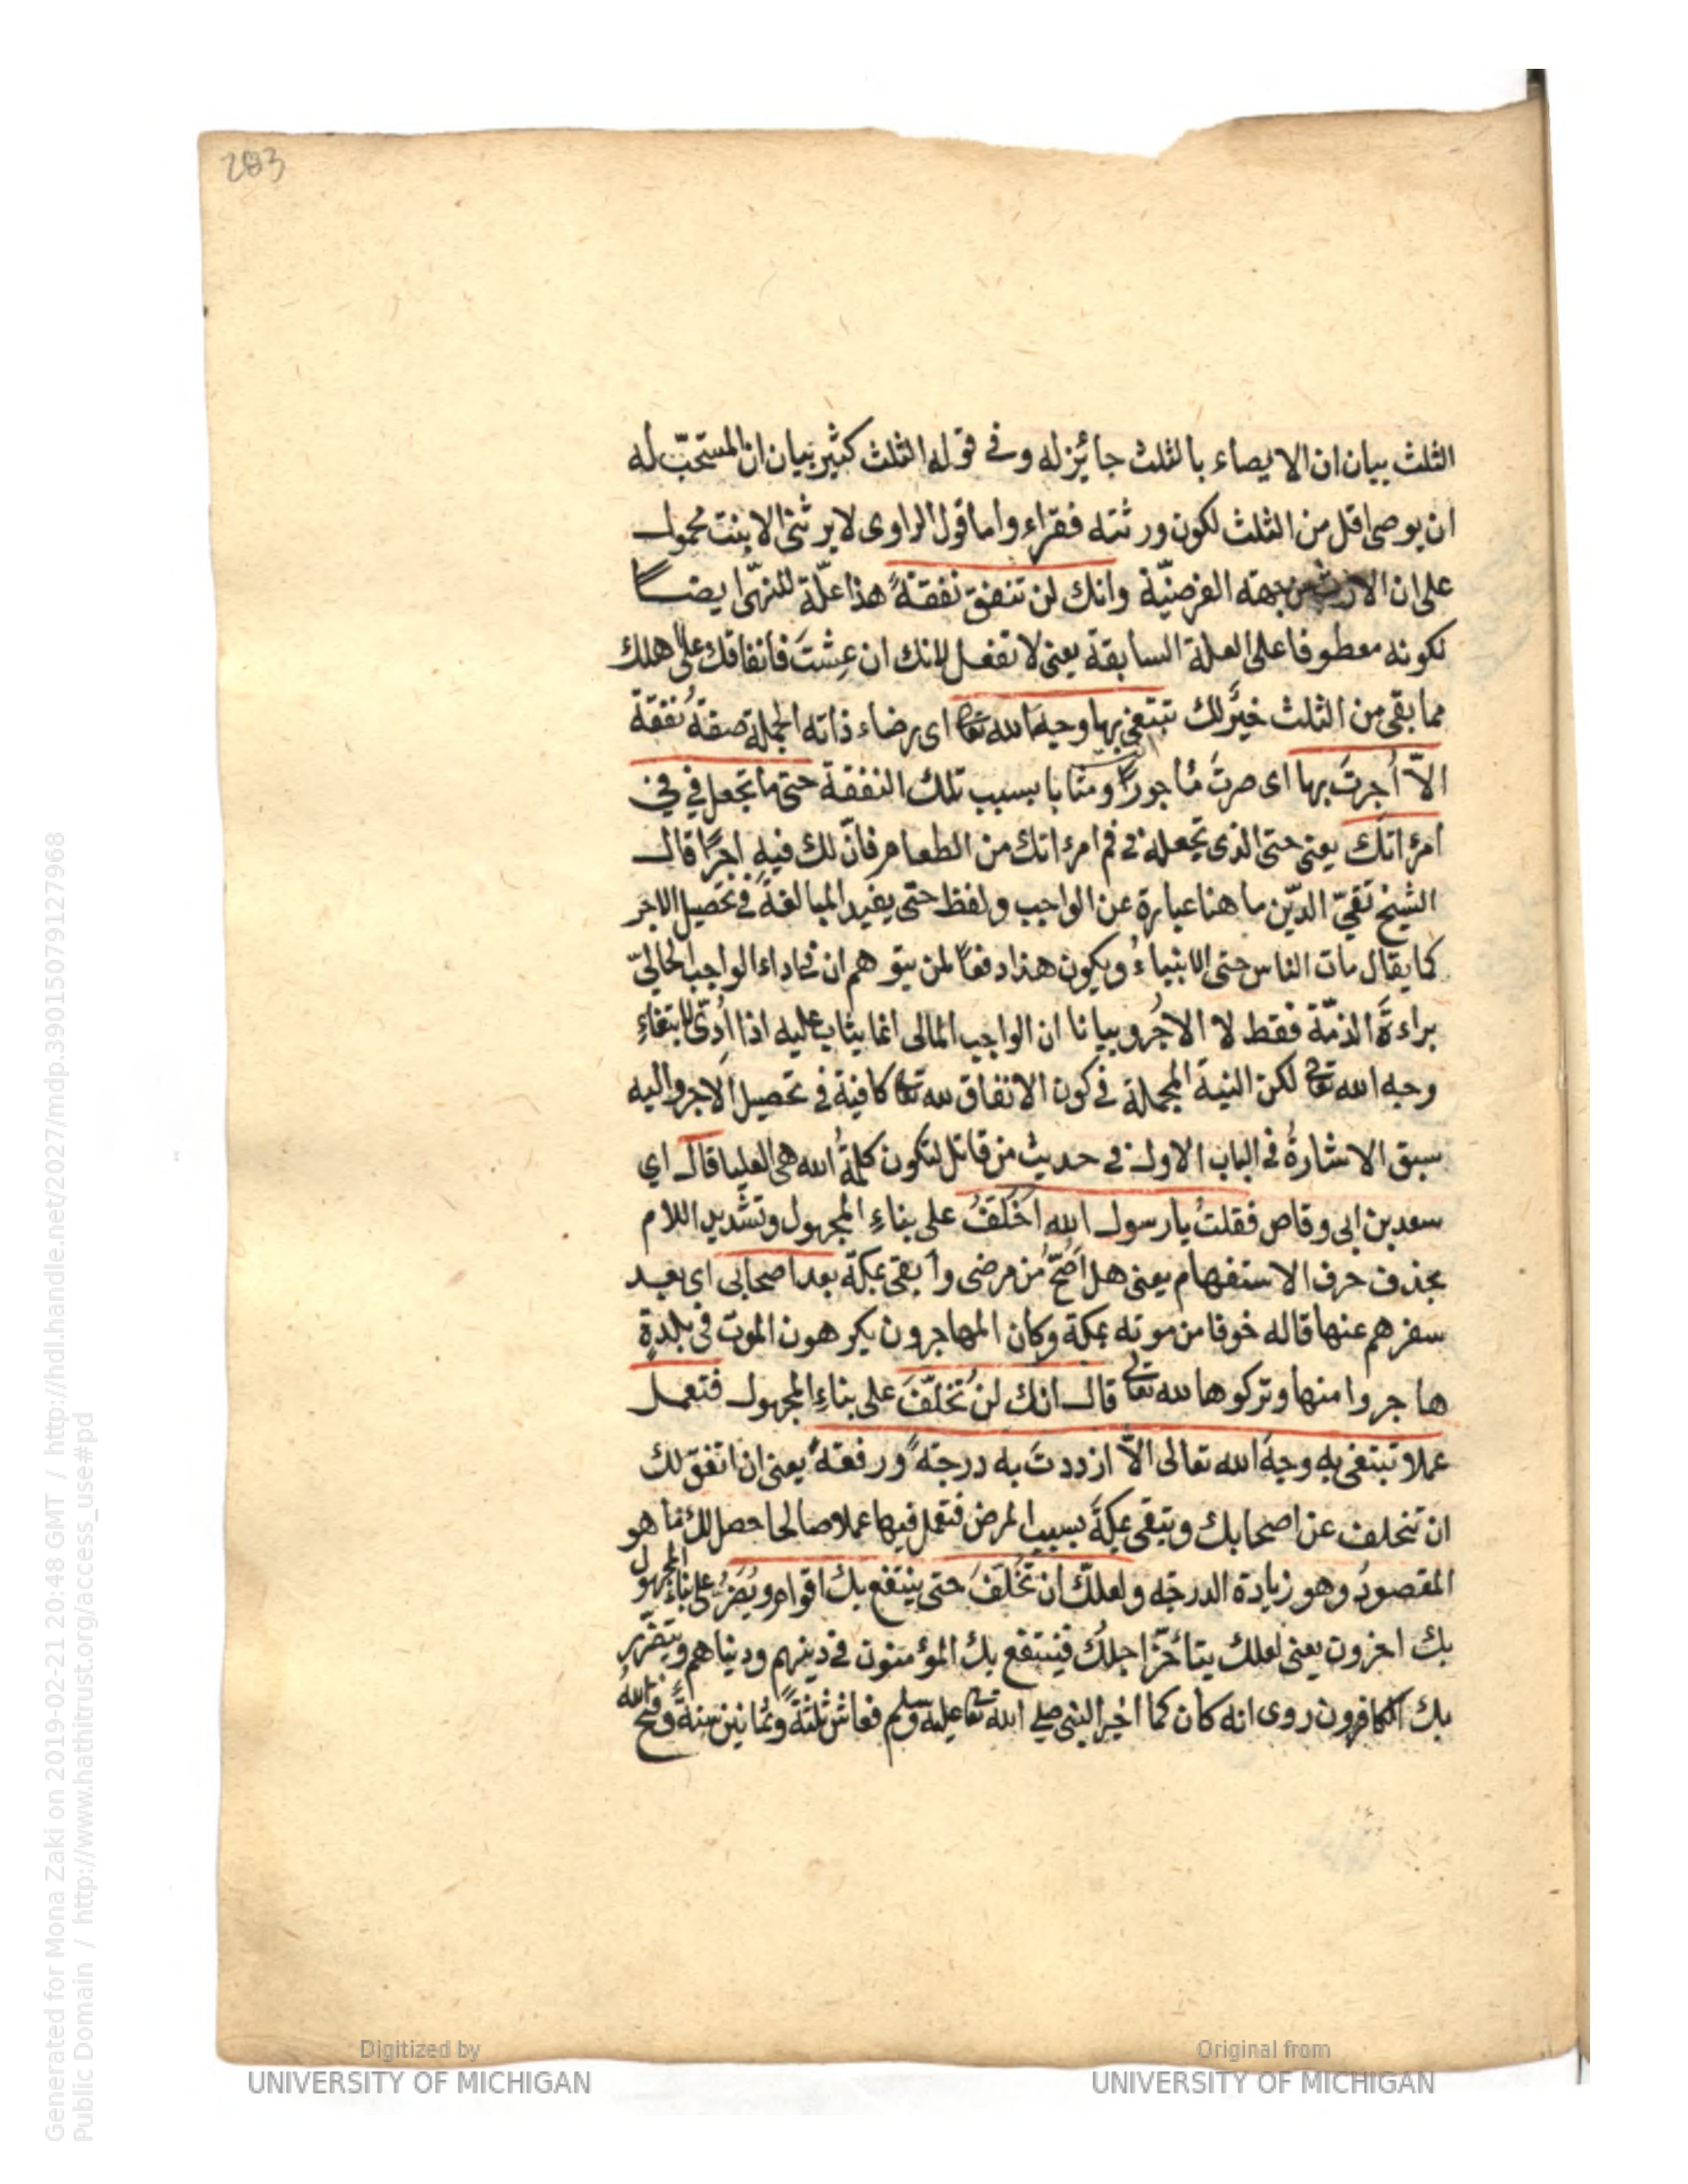 283
الثلث بيان ان الايصاء بالثلث جائز له وفى قوله الثلث كثير بيان ان المستحبّ له
ان يوصى اقل من الثلث لكون ورثته فقراء واما قول الراوى لا يرثنى الا بنت محمول
على ان الارث من جهة الفرضيّة وانك لن تنفق نفقةً هذا علّة للنهى ايضا
لكونه معطوفا على العلة السابقة يعنى لا تفعل لانك ان عِشتَ فانفاقك على اهلك
مما بقى من الثلث خيرٌ لك تبتغى بها وجه الله تعالى اى رضاء ذاته الجملة صفةُ نفقة
الاّ أُجرتَ بها اى صرتَ مُاجورًا ومثابا بسبب تلك النفقة حتى ما تجعل فى فى
امرأتك يعنى حتى الذى تجعله فى فم امرأتك من الطعام فانّ لك فيه اجرًا قال
الشيخ تقىّ الدّين ما هنا عبارة عن الواجب ولفظ حتى يفيد المبالغةَ فى تحصيل الاجر
كما يقال مات الناس حتى الانبياءُ ويكون هذا دفعًا لمن يتوهم ان فى اداء الواجب المالىّ
براءةَ الذمّة فقط لا الاجرُ وبيانا ان الواجب المالى انما يثاب عليه اذا أدّى لابتغاءِ
وجه الله تعالى لكن النية المجملة فى كون الانفاق لله تعالى كافية فى تحصيل الاجر واليه
سبق الاشارةُ فى الباب الاول فى حديث من قاتل لتكون كلمةُ الله هى العليا قال اى
سعد بن ابى وقاص فقلتُ يا رسول الله اُخَلّفُ على بناءِ المجهول وتشديد اللام
بحذف حرف الاستفهام يعنى هل اَصحّ من مرضى وأبقى بمكة بعد اصحابى اى بعد
سفرهم عنها قاله خوفا من موته بمكة وكان المهاجرون يكرهون الموت فى بلدةٍ
هاجروا منها وتركوها لله تعالى قال انك لن تُخلّفَ على بناءِ المجهول فتعمل
عملا تبتغى به وجهَ الله تعالى الاّ ازددتَ به درجةً ورفعةً يعنى ان اتفق لك
ان تتخلف عن اصحابك وتبقى بمكةَ بسبب المرض فتعمل فيها عملا صالحا حصل لك ما هو
المقصودُ وهو زيادة الدرجة ولعلّك ان تُخلّفَ حتى ينتفع بك اقوام ويُضَرُّ على بناءِ المجهول
بك اخرون يعنى لعلك يتأخّر اجلُك فينتفع بك المؤمنون فى دينهم ودنياهم ويتضرّر
بك الكافرون روى انه كان كما اخبر النبى صلى الله تعالى عليه وسلم فعاش ثلثةً وثمانين سنةً وفتح الله
Digitized by
UNIVERSITY OF MICHIGAN
Original from
UNIVERSITY OF MICHIGAN
Generated for Mona Zaki on 2019-02-21 20:48 GMT / http://hdl.handle.net/2027/mdp.39015079127968
Public Domain / http://www.hathitrust.org/access_use#pd